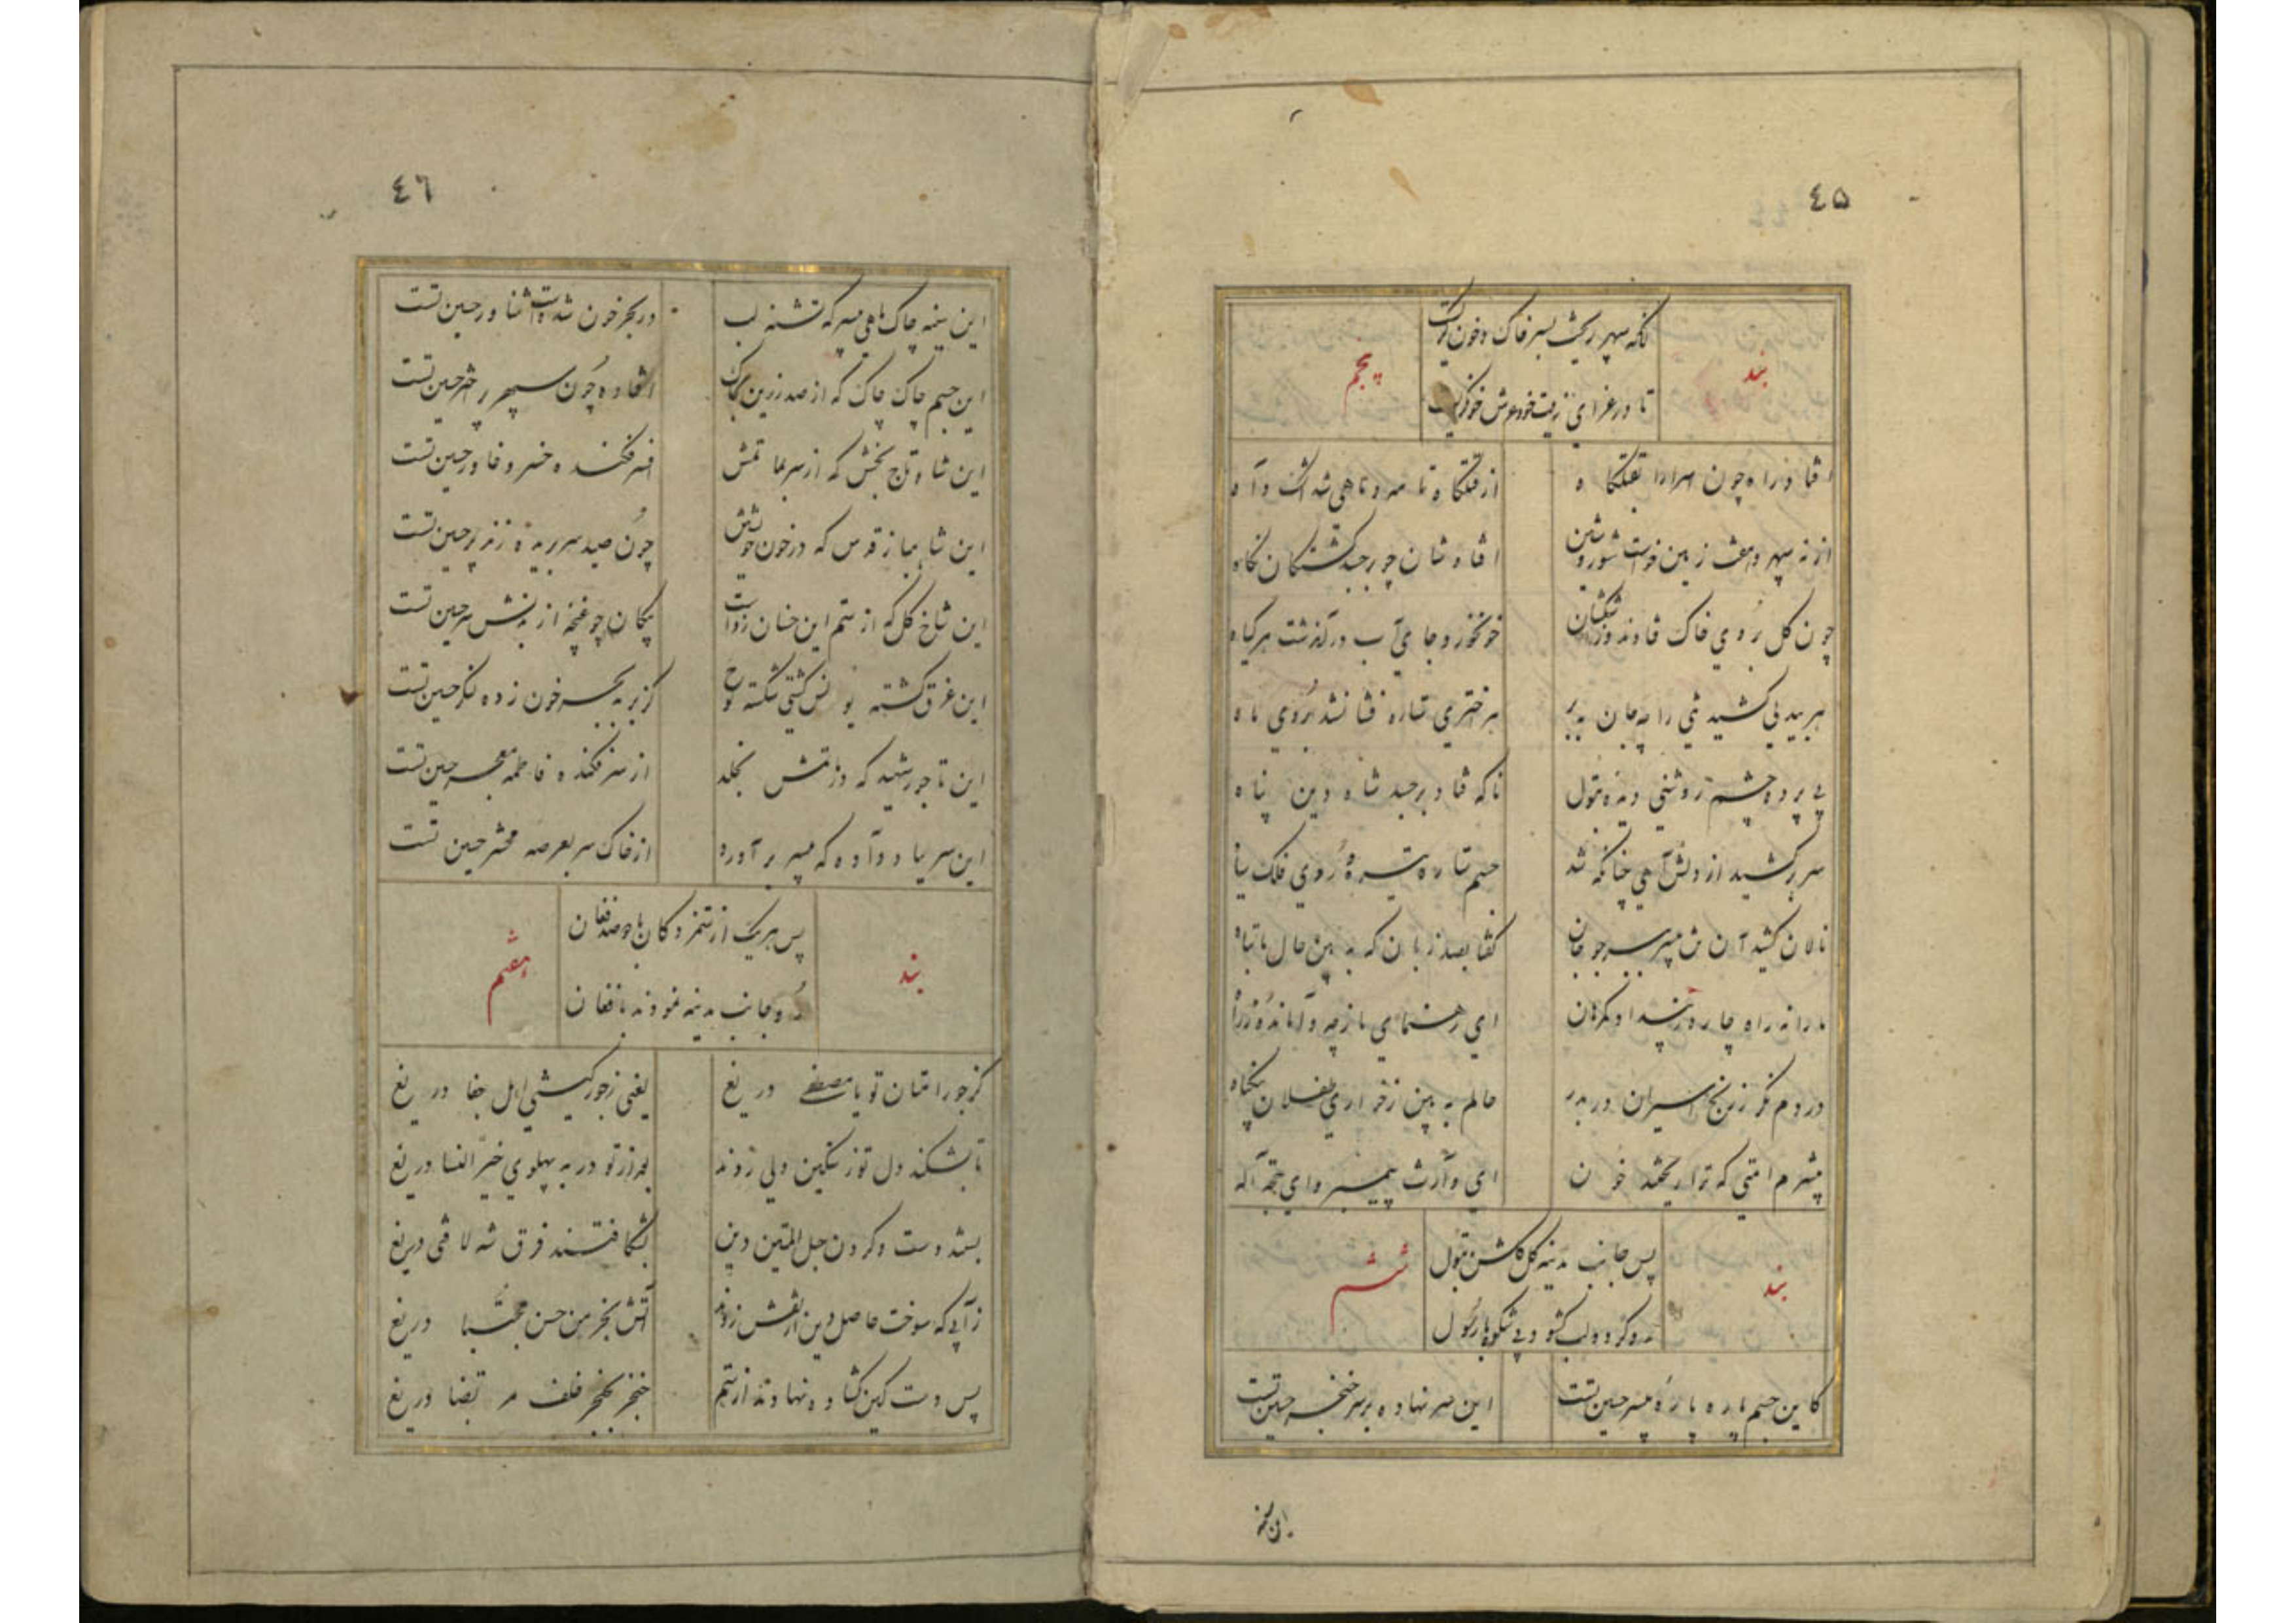 ٤۵
ناگه سپهر ریخت بسر خاک و خون
بند
پنجم
تا در عزای زینت خود دوش
افتاد راه چون اسرا را بقتلگاه
از قتلگاه تا مه و ماهی شد اشک و آه
از نه سپهر و هفت زمین خواست شور و شین
افتادشان چو بر جسد کشتگان نگاه
چون گل بروی خاک فتادند و اشکشان
خون خورد و جای آب در گذشت هر گیاه
هر بیدلی کشید تنی را به جان به بر
هر اختری ستاره فشان شد بروی ماه
بی پرده چشم روشنی دیده بتول
ناگه فتاد بر جسد شاه دین پناه
سر بر کشید از دلش آهی چنانکه شد
چشم ستاره تیره و روی فلک سیاه
نالان کشید آن تن بی سر چو جان
گفتا بصد زبان که ببین حال ما تباه
ما را نه راه چاره
ای رهنمای باز چه
در دم نگر ز رنج اسیران در بدر
حالم به بین ز خواری طفلان بیگناه
بیشرم امتی که ترا ریختند خون
ای وارث پیمبر و ای حجة اله
پس جانب مدینه گل گلشن بتول
بند
ششم
رو کرد و لب گشود بی شکوه با رسول
کاین جسم پاره پاره بی سر حسین تست
این سر نهاده بر سر خنجر حسین تست
این سینه
٤٦
این سینه چاک ماهی بی سر که تشنه لب
در بحر خون شد است شناور حسین تست
این جسم چاک چاک که از صدر زین بخاک
افتاده چون سپهر پر اختر حسین تست
این شاه تاج بخش که از سر عمامتش
افسر فکنده خسرو خاور حسین تست
این شاهباز قدس که در خون خویش
چون صید سر بریده زند پر حسین تست
این شاخ گل که از ستم این خسان رواست
پیکان چو غنچه از بدنش سر حسین تست
این غرق گشته یونس کشتی شکسته نوح
کز بر به بحر خون زده لنگر حسین تست
این تاجور شهید که در ماتمش بخلد
از سر فکنده فاطمه معجر حسین تست
این سر بباد داده که بی سر برآورد
از خاک سر بعرصه محشر حسین تست
پس هر یک از ستمزدگان با دو صد فغان
بند
هفتم
رو جانب مدینه نمودند با فغان
کز جور امتان تو یا مصطفی دریغ
یعنی ز جور کیشی اهل جفا دریغ
تا بشکند دل تو ز سنگین دلی زدند
بعد از تو در به پهلوی خیر النسا دریغ
بستند دست و گردن حبل المتین دین
بشکافتند فرق شه لافتی دریغ
ز آبی که سوخت حاصل دین ز آتشش زدند
آتش بخرمن حسن مجتبی دریغ
پس دست کین گشاده نهادند از ستم
خنجر بحنجر خلف مرتضا دریغ